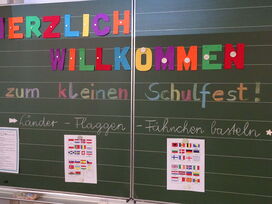 HERZLICH
WILLKOMMEN
zum kleinen Schulfest!
Länder-Flaggen - Fähnchen basteln